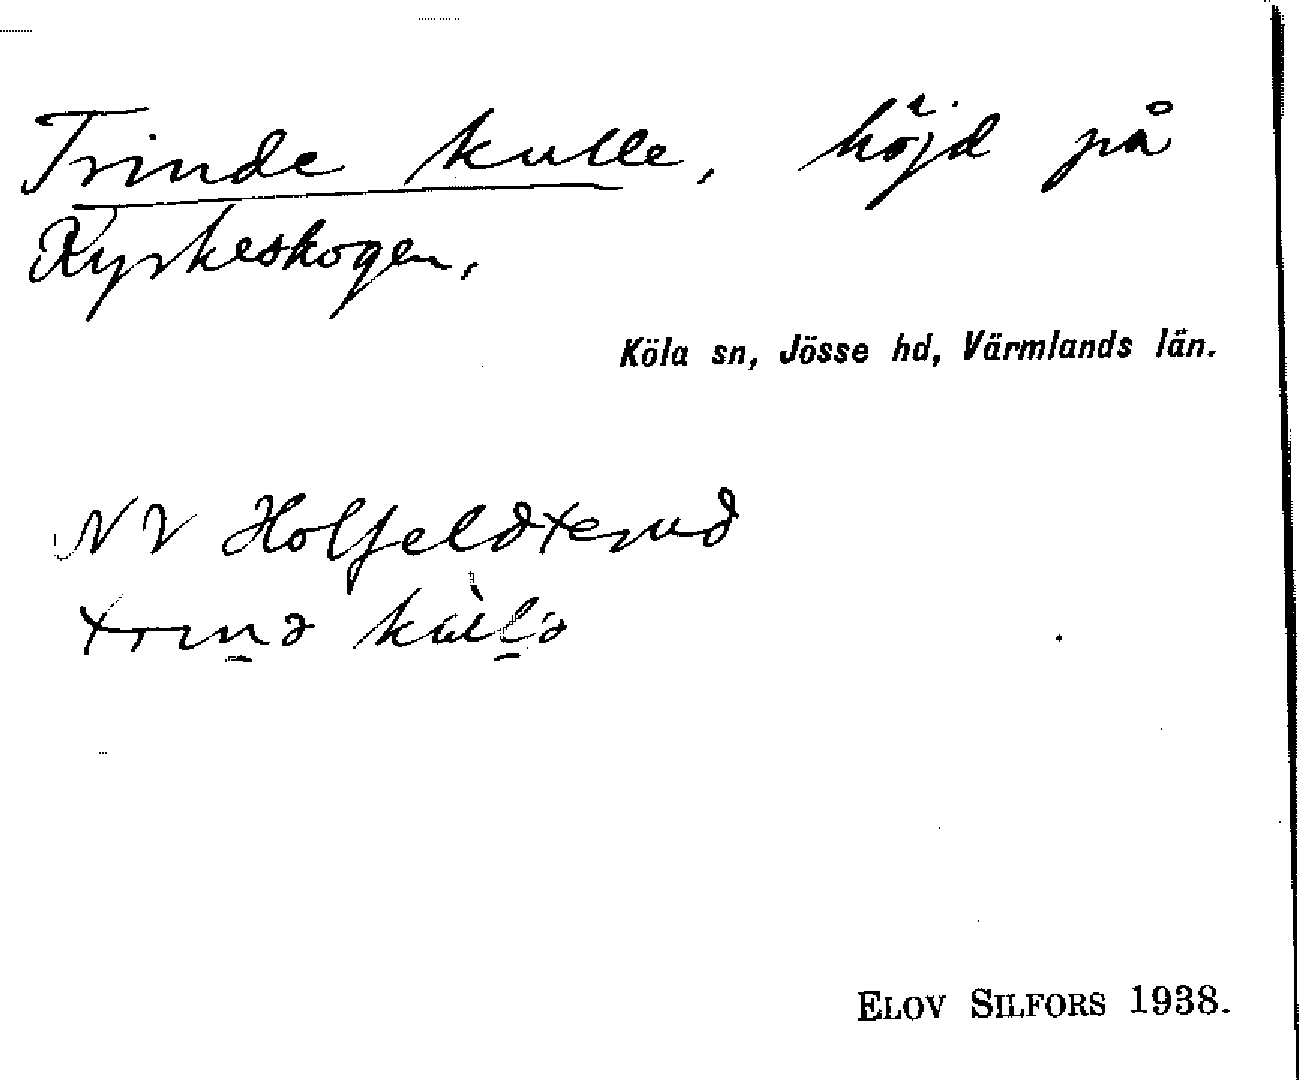 Trinde kulle, höjd på
Ryrkeskogen,
Köla sn, Jösse hd, Värmlands län.
NV Holfeldterud
ELOV SILFORS 1938.